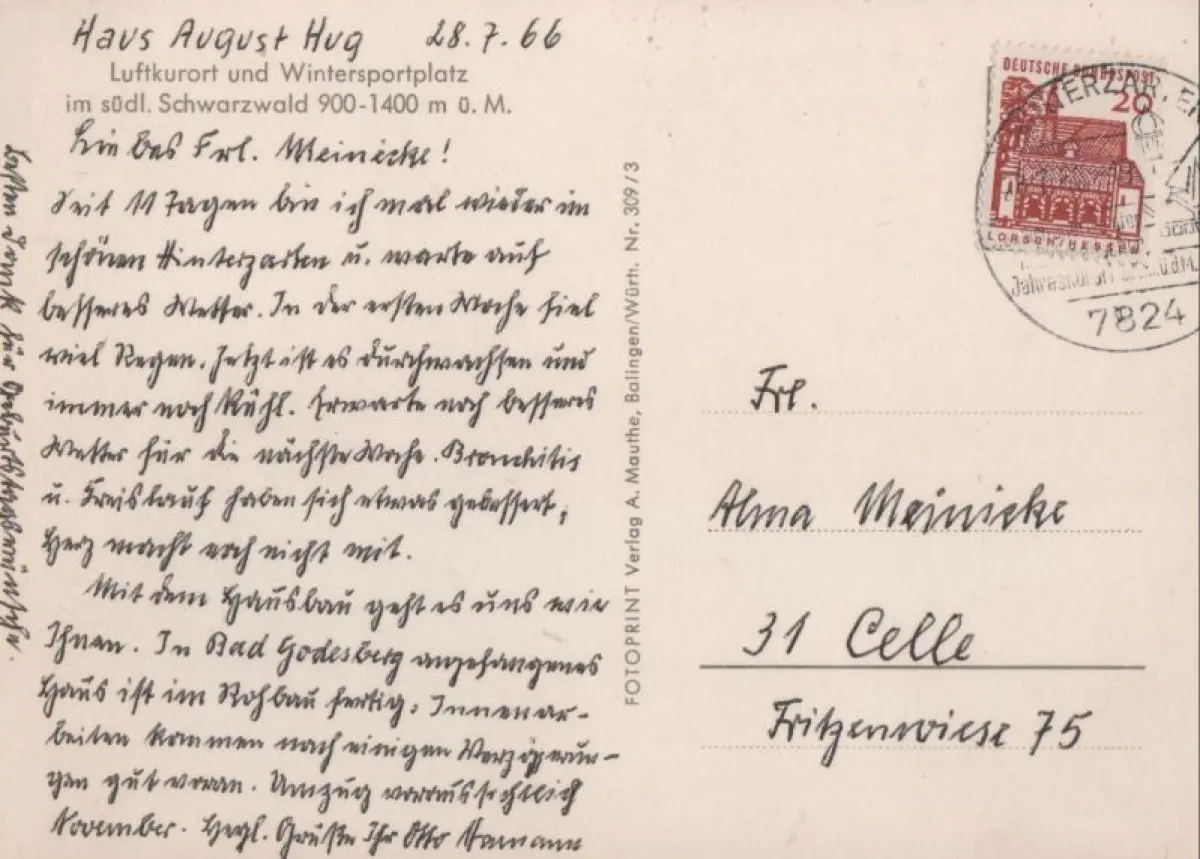 Haus August Hug 28.7.66
Luftkurort und Wintersportplatz
im südl. Schwarzwald 900-1400 m ü. M.
Liebes Frl. Meinicke!
Seit 11 Tagen bin ich mal wieder im
schönen Hinterzarten u. warte auf
besseres Wetter. In der ersten Woche fiel
viel Regen. Jetzt ist es durchwachsen und
immer noch kühl. Erwarte noch besseres
Wetter für die nächste Woche. Bronchitis
u. Kreislauf haben sich etwas gebessert,
Herz macht noch nicht mit.
Mit dem Hausbau geht es uns wie
Ihnen. In Bad Godesberg angefangenes
Haus ist im Rohbau fertig. Innenar-
beiten kommen nach einigen Verzögerun-
gen gut voran. Umzug voraussichtlich
November. Herzl. Grüße Ihr Otto
besten Dank für Geburtstagswünsche.
FOTOPRINT Verlag A. Mauthe, Balingen/Württ. Nr. 309/3
DEUTSCHE BUNDESPOST
20
LORSCH/HESSEN
HINTERZARTEN
7824
Frl.
Alma Meinicke
31 Celle
Fritzenwiese 75